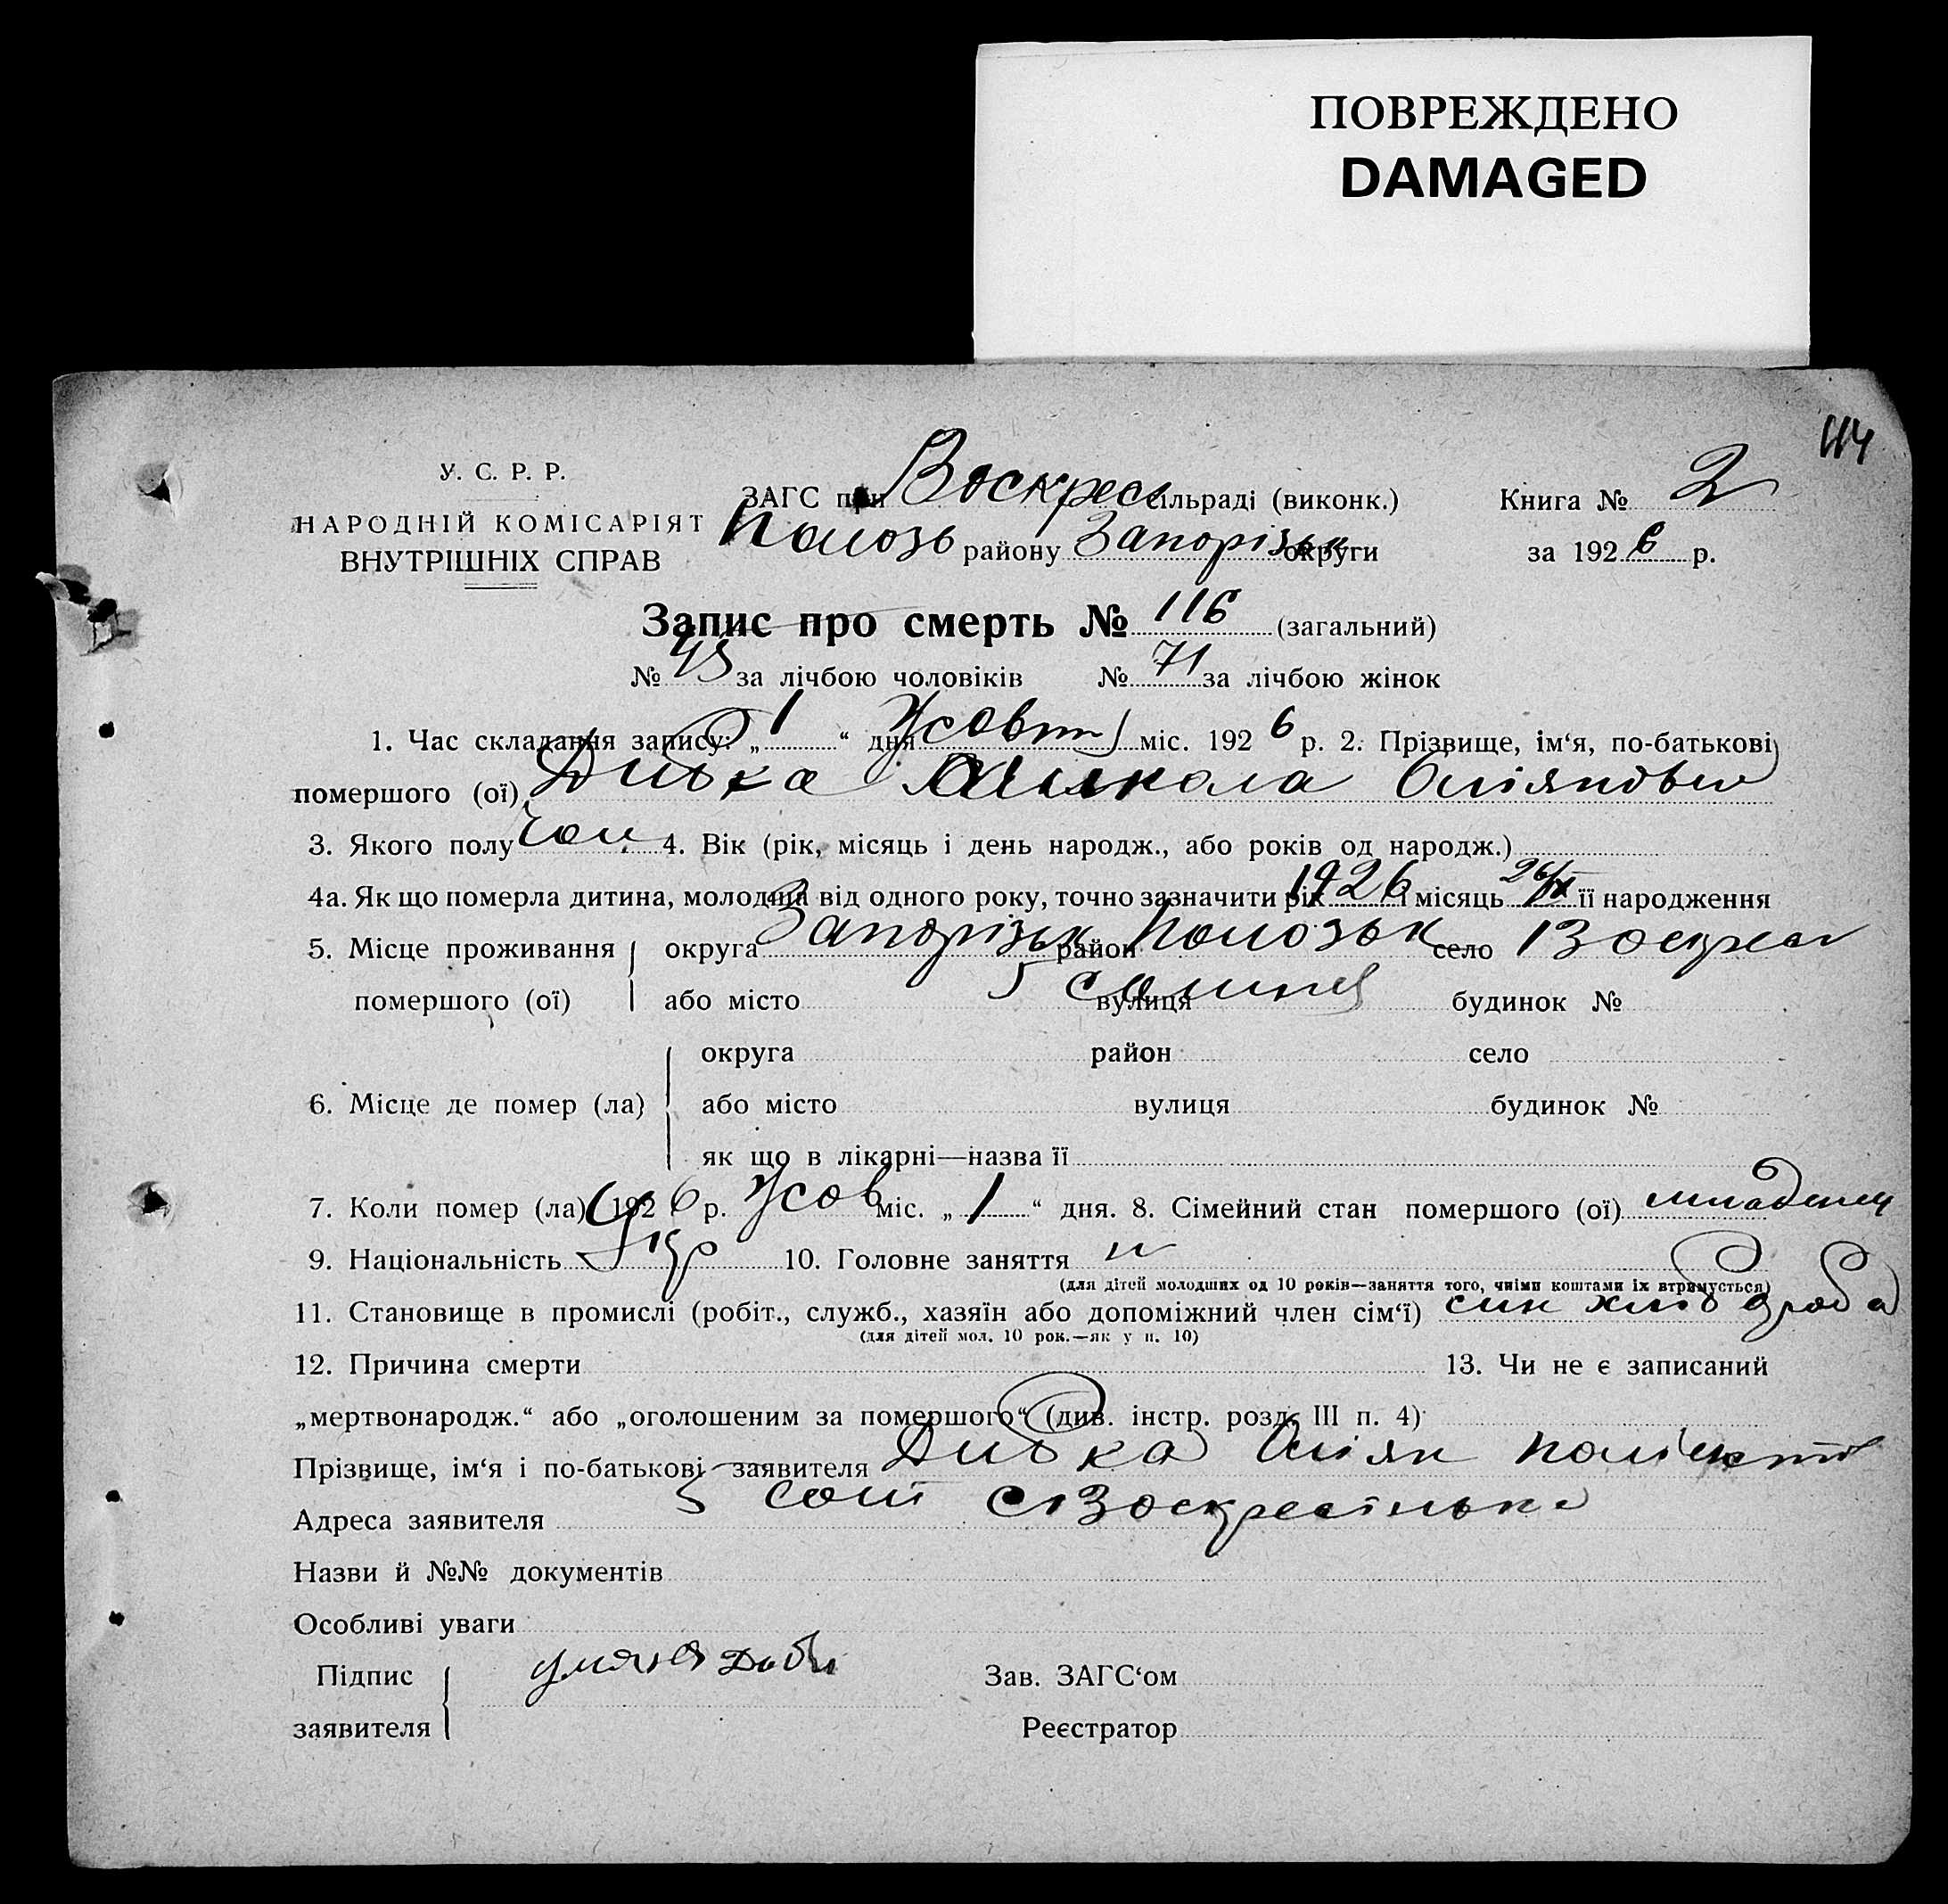 ПОВРЕЖДЕНО
DAMAGED
114
У. С. Р. Р.
НАРОДНІЙ КОМІСАРІЯТ
ВНУТРІШНІХ СПРАВ
ЗАГС при Воскресь сільраді (виконк.) Книга № 2
Полозь району Запорізьк округи за 1926 р.
Запис про смерть № 116 (загальний)
№ 45 за лічбою чоловіків № 71 за лічбою жінок
1. Час складання запису: „1“ дня Жовтн міс. 1926 р. 2. Прізвище, ім‘я, по-батькові
помершого (ої) Дибка Микола
3. Якого полу чол 4. Вік (рік, місяць і день народж., або років од народж.)
4а. Як що померла дитина, молодша від одного року, точно зазначити рік 1926 і місяць 26/IX її народження
5. Місце проживання округа Запорізьк район Полозьк село Воскрес
помершого (ої) або місто 5 сотня вулиця будинок №
округа район село
6. Місце де помер (ла) або місто вулиця будинок №
як що в лікарні—назва її
7. Коли помер (ла) 1926 р. Жов міс. „1“ дня. 8. Сімейний стан помершого (ої) младенец
9. Національність Укр 10. Головне заняття
(для дітей молодших од 10 років—заняття того, чиїми коштами їх втримується)
11. Становище в промислі (робіт., служб., хазяїн або допоміжний член сім‘ї) син хлібороба
(для дітей мол. 10 рок.—як у п. 10)
12. Причина смерти 13. Чи не є записаний
„мертвонародж.“ або „оголошеним за помершого“ (див. інстр. розд. III п. 4)
Прізвище, ім‘я і по-батькові заявителя Дибка
Адреса заявителя 5 сотні с Воскресінька
Назви й №№ документів
Особливі уваги
Підпис Зав. ЗАГС‘ом
заявителя Реєстратор